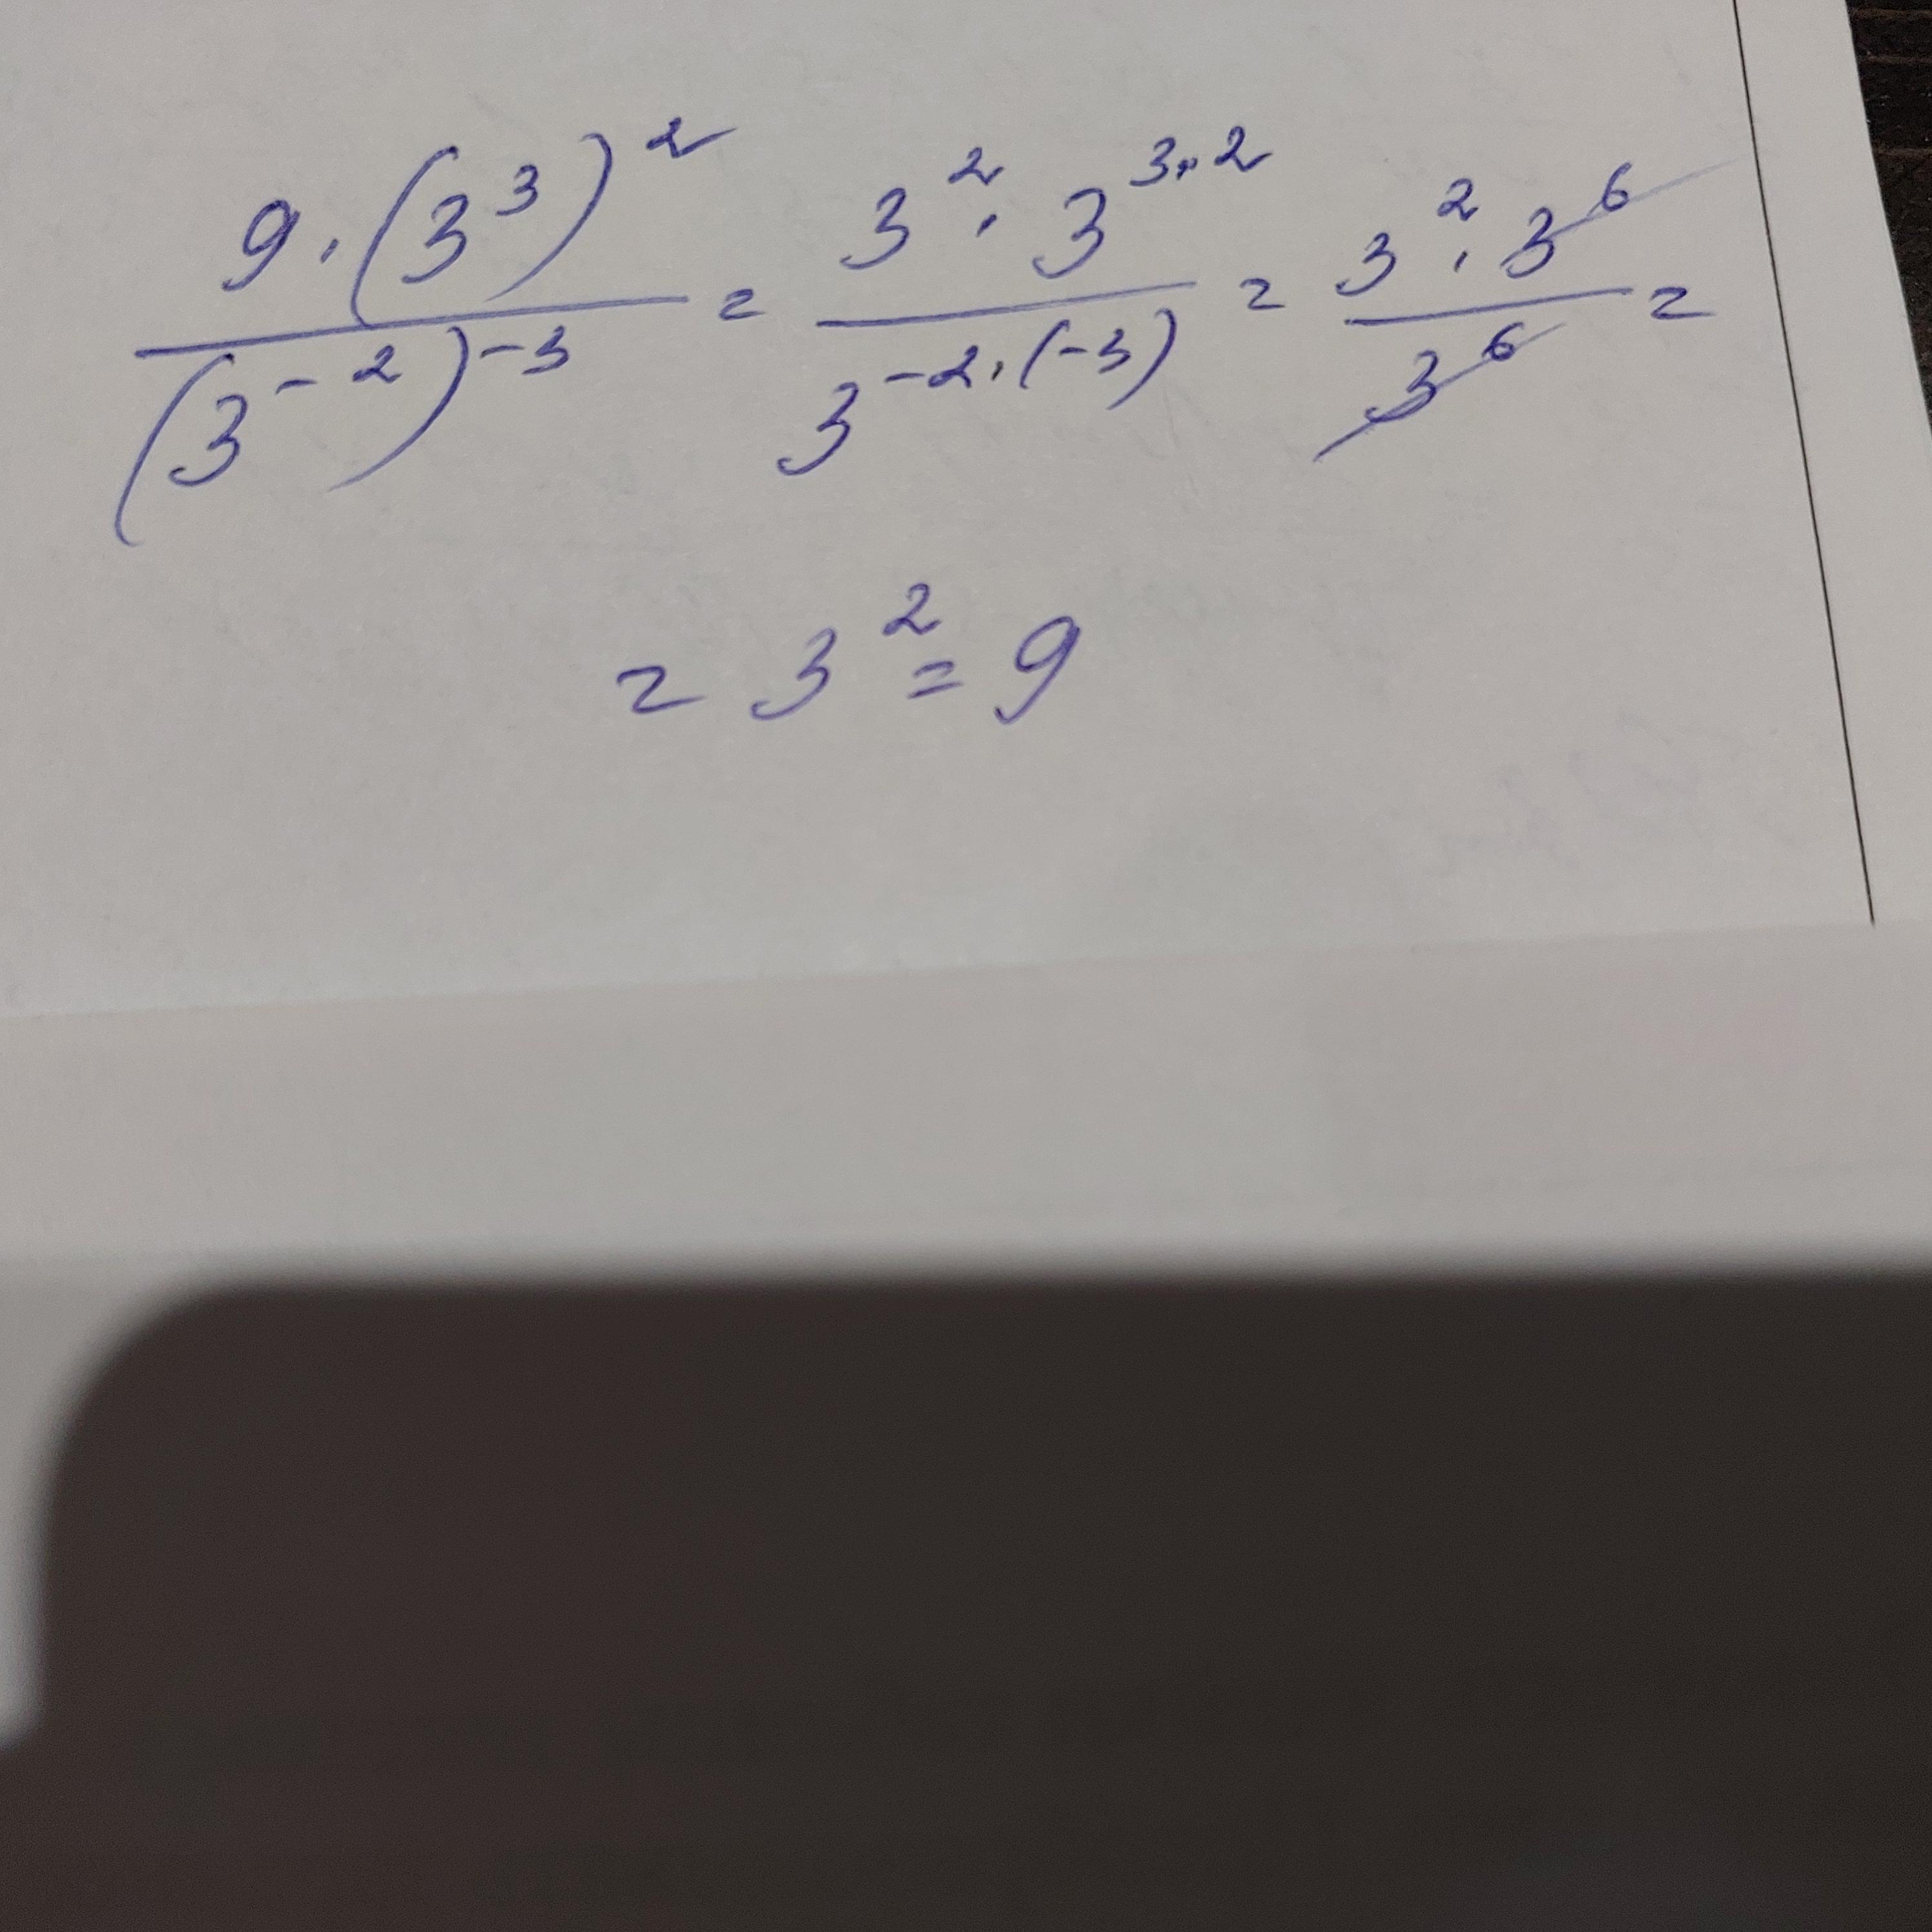 9 · (3³)² / (3⁻²)⁻³ = 3² · 3³·² / 3⁻²·⁽⁻³⁾ = 3² · 3⁶ / 3⁶ =
= 3² = 9